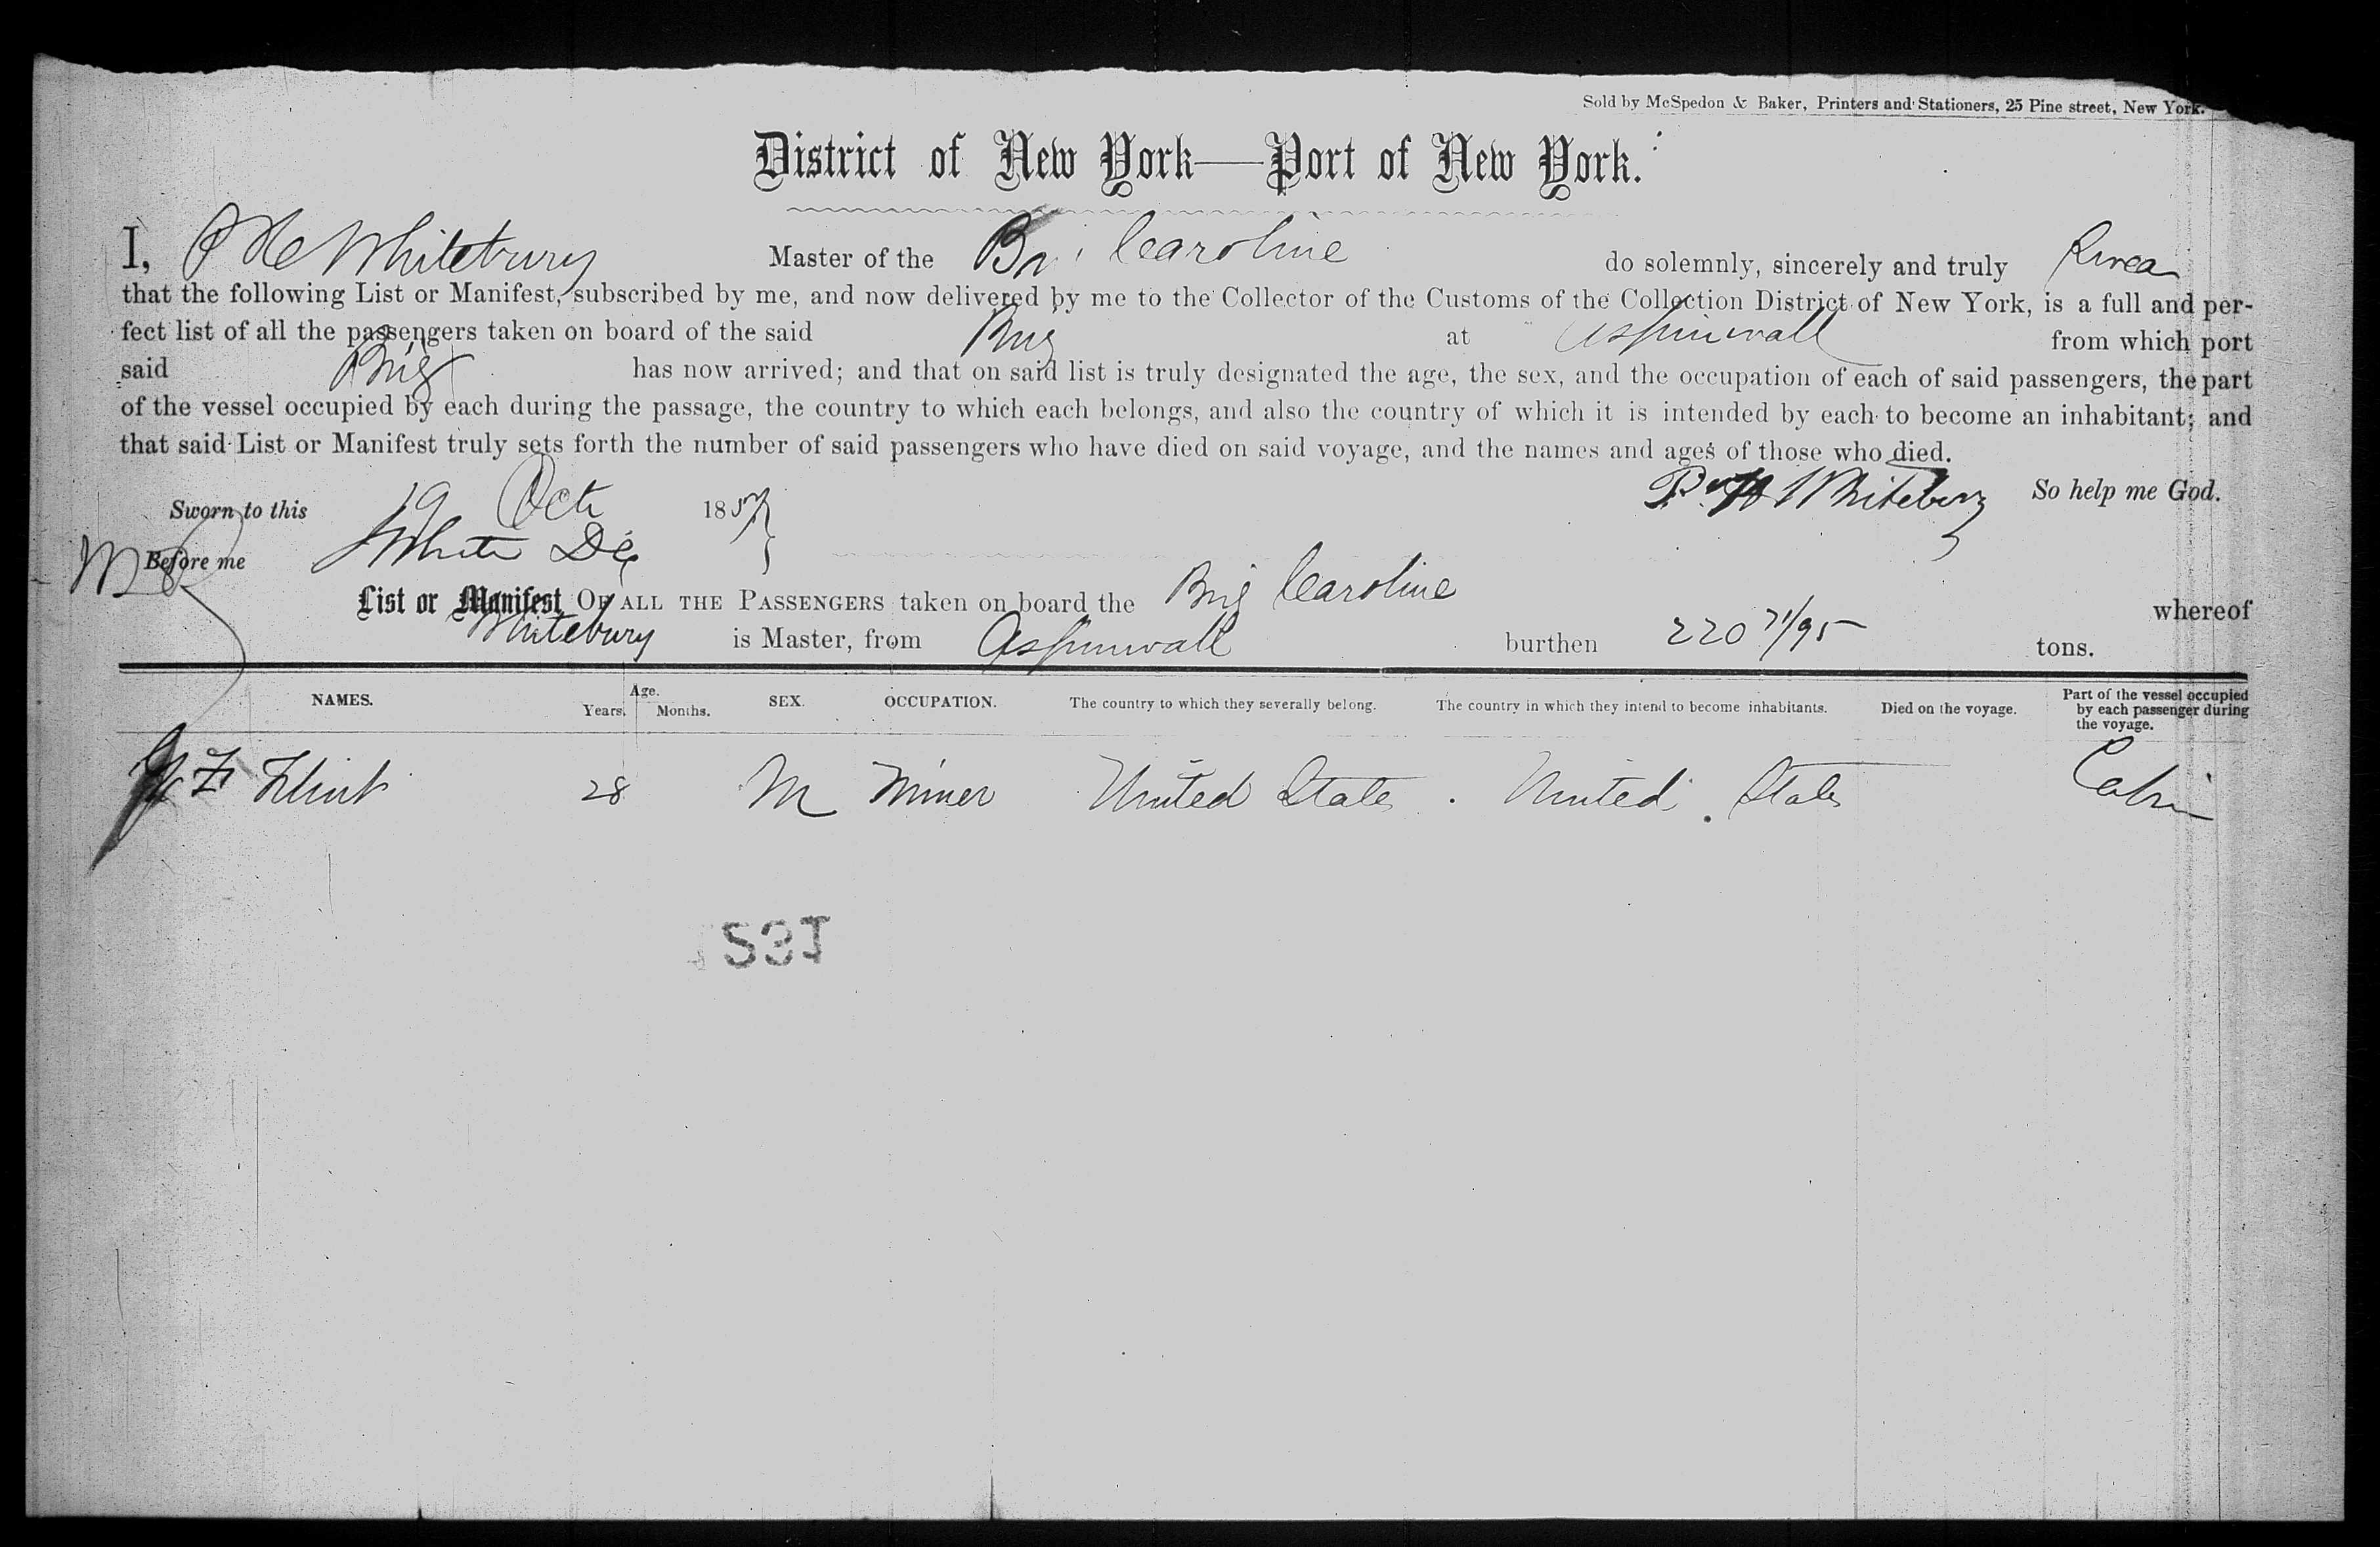 Sold by McSpedon & Baker, Printers and Stationers, 25 Pine street, New York.
District of New York—Port of New York.
I, Whitebury Master of the Bri Caroline do solemnly, sincerely and truly
that the following List or Manifest, subscribed by me, and now delivered by me to the Collector of the Customs of the Collection District of New York, is a full and per-
fect list of all the passengers taken on board of the said Brig at Aspinwall from which port
said Brig has now arrived; and that on said list is truly designated the age, the sex, and the occupation of each of said passengers, the part
of the vessel occupied by each during the passage, the country to which each belongs, and also the country of which it is intended by each to become an inhabitant; and
that said List or Manifest truly sets forth the number of said passengers who have died on said voyage, and the names and ages of those who died.
Whitebury So help me God.
Sworn to this 19 Oct 1857
Before me White
List or Manifest OF ALL THE PASSENGERS taken on board the Brig Caroline whereof
Whitebury is Master, from Aspinwall burthen 220 71/95 tons.
NAMES. Age. Years. Months. SEX. OCCUPATION. The country to which they severally belong. The country in which they intend to become inhabitants. Died on the voyage. Part of the vessel occupied by each passenger during the voyage.
F Flint 28 M Miner United States United States Cabin